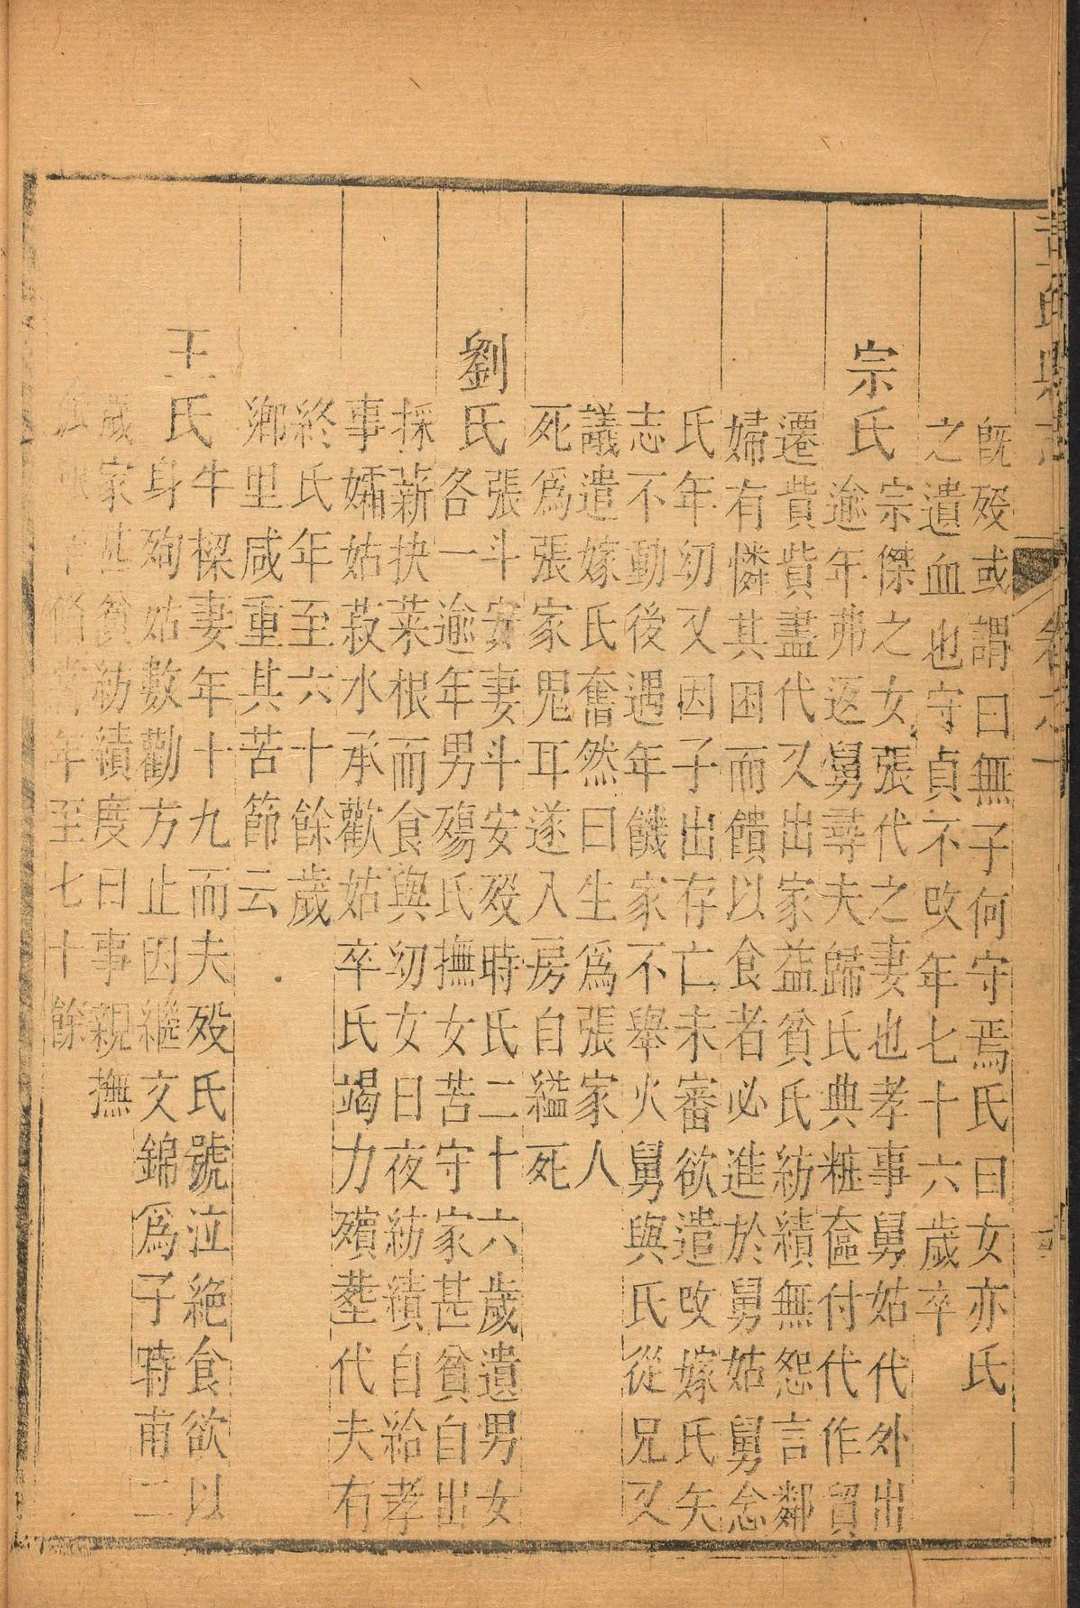 既歿或謂曰無子何守焉氏曰女亦氏
之遺血也守貞不改年七十六歲卒
宗氏
宗傑之女張代之妻也孝事舅姑代外出
逾年弗返舅尋夫歸氏典粧奩付代作貿
遷貲貲盡代又出家益貧氏紡績無怨言鄰
婦有憐其困而饋以食者必進於舅姑舅念
氏年幼又因子出存亡未審欲遣改嫁氏矢
志不動後遇年饑家不舉火舅與氏從兄又
議遣嫁氏奮然曰生為張家人
死為張家鬼耳遂入房自縊死
劉氏
張斗安妻斗安歿時氏二十六歲遺男女
各一逾年男殤氏撫女苦守家甚貧自出
採薪抉菜根而食與幼女日夜紡績自給孝
事孀姑菽水承歡姑卒氏竭力殯塟代夫有
終氏年至六十餘歲
鄉里咸重其苦節云
王氏
牛樑妻年十九而夫歿氏號泣絕食欲以
身殉姑數勸方止因繼文錦為子時甫二
歲家甚貧紡績度日事親撫
年至七十餘